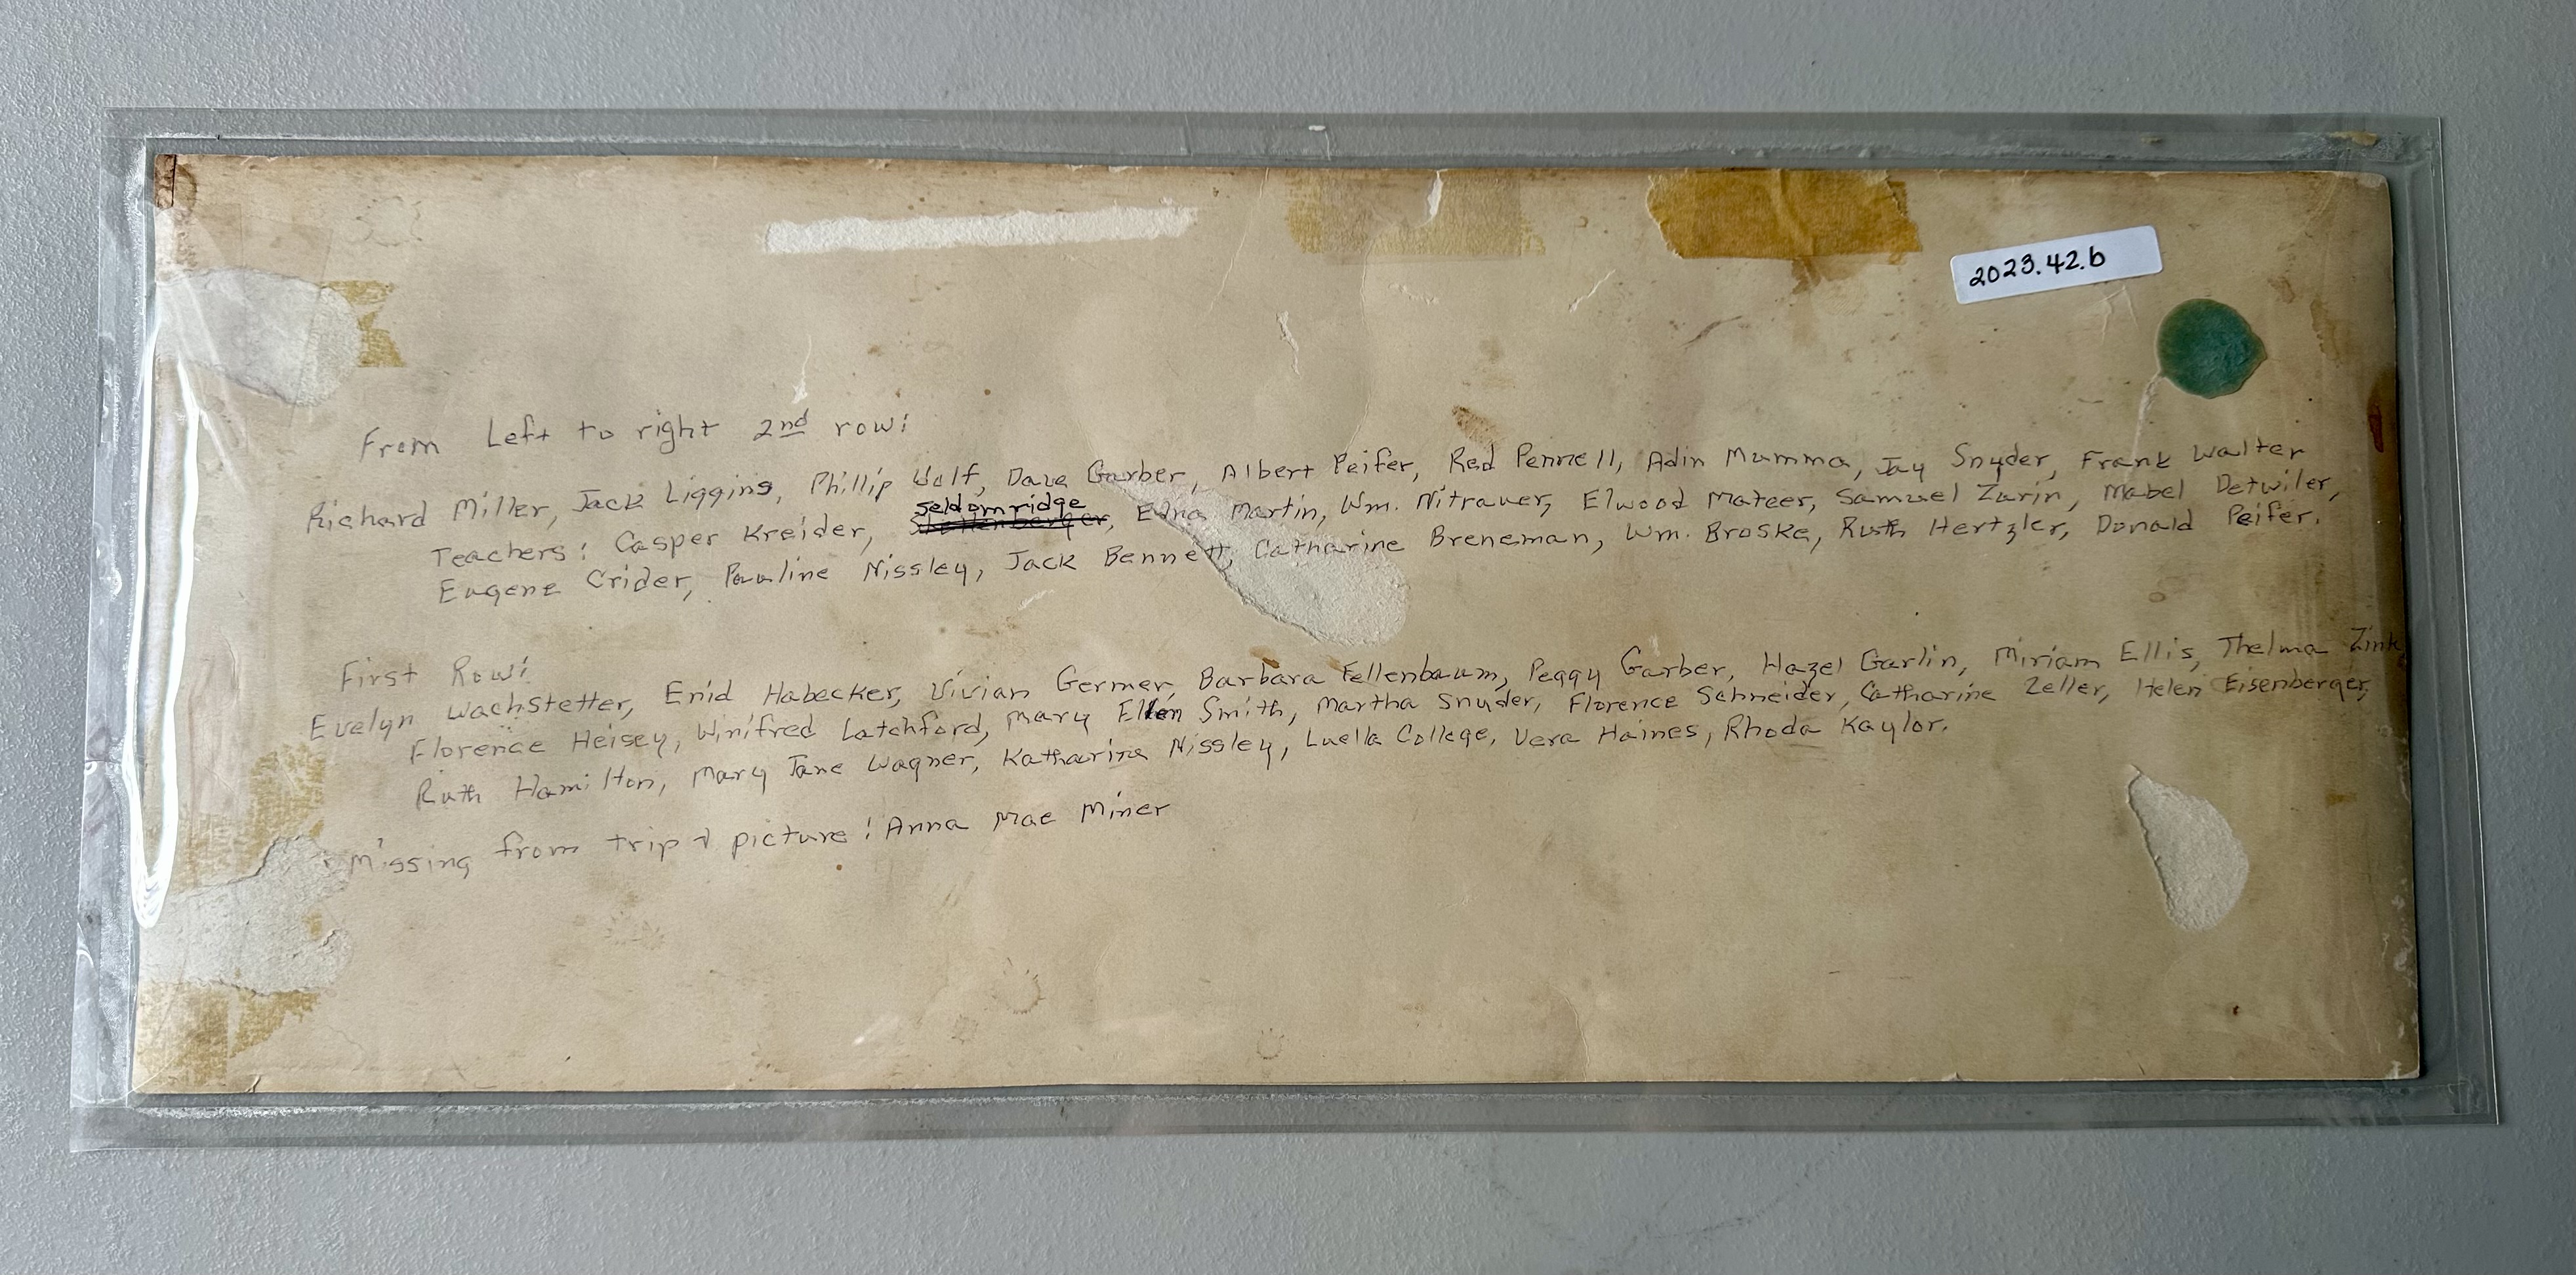 2023.42.b
From Left to right 2nd row:
Richard Miller, Jack Liggins, Phillip Wolf, Dave Garber, Albert Peifer, Red Pennell, Adin Mumma, Jay Snyder, Frank Walter
Teachers: Casper Kreider, Seldomridge, Edna Martin, Wm. Nitrauer, Elwood Mateer, Samuel Zarin, Mabel Detwiler,
Eugene Crider, Pauline Nissley, Jack Bennett, Catharine Breneman, Wm. Broske, Ruth Hertzler, Donald Peifer.
First Row:
Evelyn Wachstetter, Enid Habecker, Vivian Germer, Barbara Fellenbaum, Peggy Garber, Hazel Garlin, Miriam Ellis, Thelma Zink
Florence Heisey, Winifred Latchford, Mary Ellen Smith, Martha Snyder, Florence Schneider, Catharine Zeller, Helen Eisenberger,
Ruth Hamilton, Mary Jane Wagner, Katharine Nissley, Luella College, Vera Haines, Rhoda Kaylor.
Missing from trip & picture: Anna Mae Miner